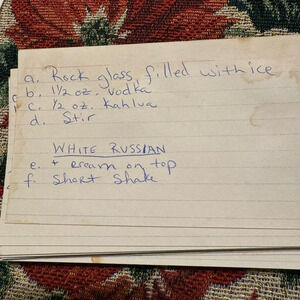 a. Rock glass, filled with ice
b. 1½ oz. vodka
c. ½ oz. Kahlua
d. Stir
WHITE RUSSIAN
e. + cream on top
f. Short Shake